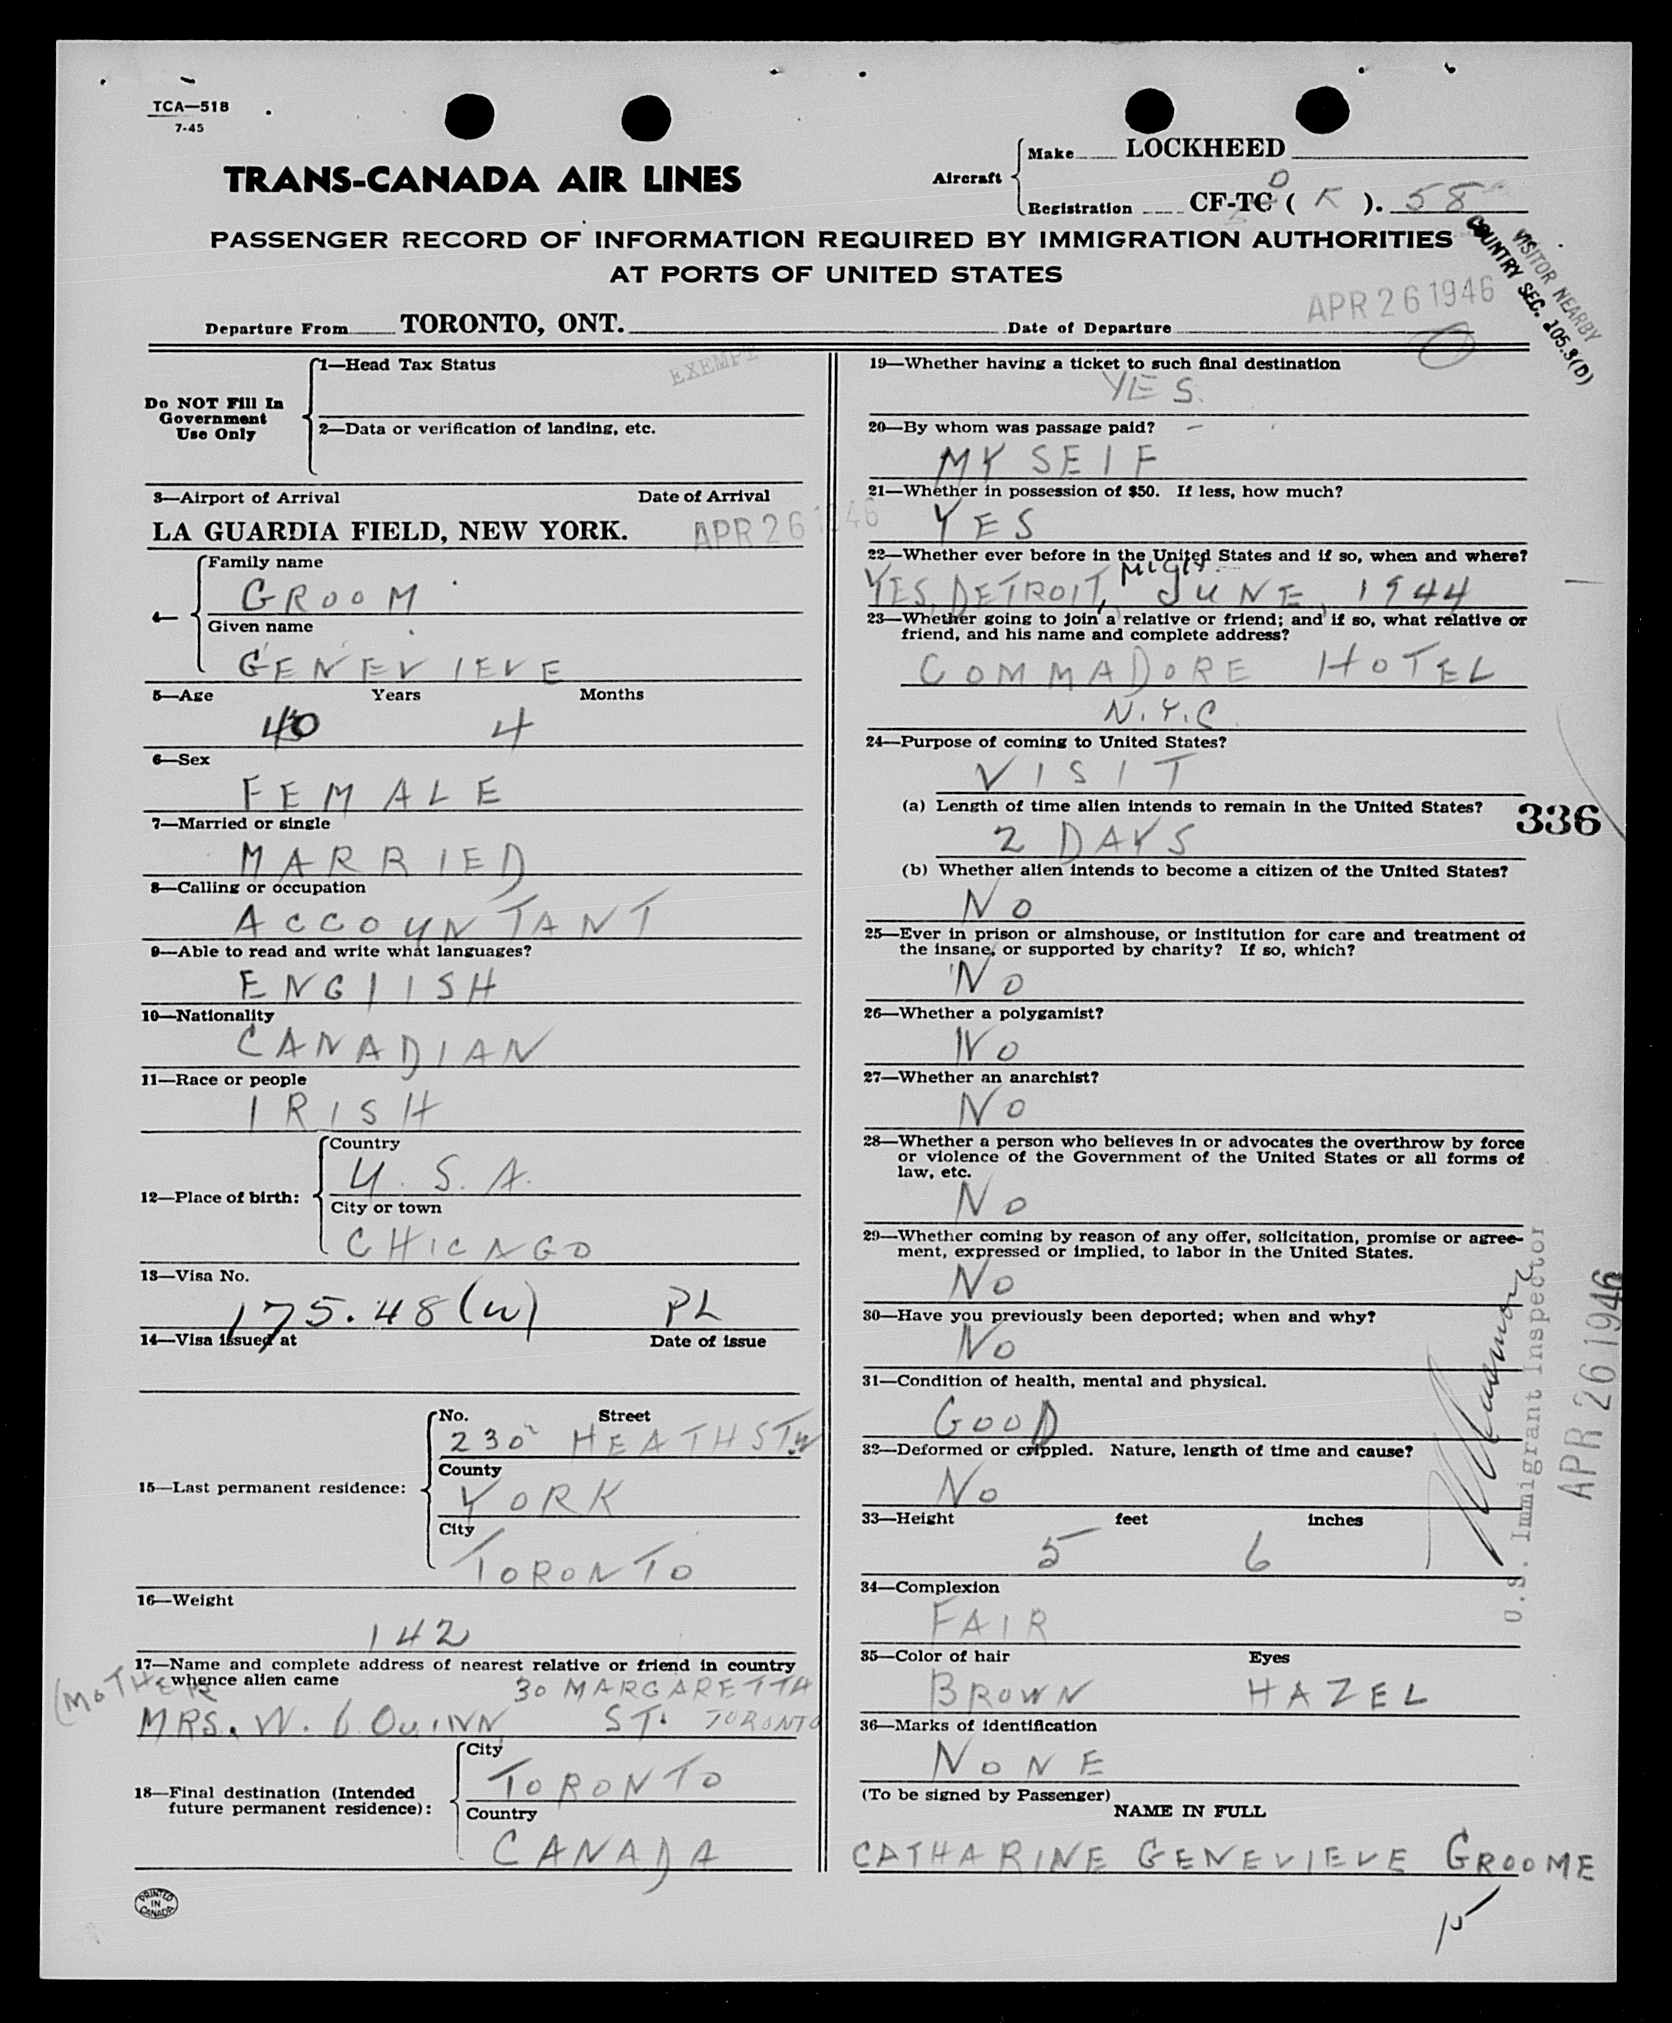 TCA—518
7-45
TRANS-CANADA AIR LINES
Aircraft
Make LOCKHEED
D
Registration CF-TC ( K ). 58
PASSENGER RECORD OF INFORMATION REQUIRED BY IMMIGRATION AUTHORITIES
AT PORTS OF UNITED STATES
VISITOR NEARBY
COUNTRY SEC. 105.3(D)
APR 26 1946
Departure From TORONTO, ONT. Date of Departure
Do NOT Fill In
Government
Use Only
1—Head Tax Status
EXEMPT
2—Data or verification of landing, etc.
3—Airport of Arrival Date of Arrival
LA GUARDIA FIELD, NEW YORK. APR 26 1946
4—
Family name
GROOM
Given name
GENEVIEVE
5—Age Years Months
40 4
6—Sex
FEMALE
7—Married or single
MARRIED
8—Calling or occupation
ACCOUNTANT
9—Able to read and write what languages?
ENGLISH
10—Nationality
CANADIAN
11—Race or people
IRISH
12—Place of birth:
Country
U.S.A.
City or town
CHICAGO
13—Visa No.
175.48(w) PL
14—Visa issued at Date of issue
15—Last permanent residence:
No. Street
230 HEATH ST W
County
YORK
City
TORONTO
16—Weight
142
17—Name and complete address of nearest relative or friend in country
whence alien came
(MOTHER 30 MARGARETTA
MRS. W. QUINN ST. TORONTO
18—Final destination (Intended
future permanent residence):
City
TORONTO
Country
CANADA
PRINTED
IN
CANADA
19—Whether having a ticket to such final destination
YES.
20—By whom was passage paid?
MYSELF
21—Whether in possession of $50. If less, how much?
YES
22—Whether ever before in the United States and if so, when and where?
YES, DETROIT, MICH. JUNE, 1944
23—Whether going to join a relative or friend; and if so, what relative or
friend, and his name and complete address?
COMMADORE HOTEL
N.Y.C.
24—Purpose of coming to United States?
VISIT
(a) Length of time alien intends to remain in the United States?
2 DAYS
336
(b) Whether alien intends to become a citizen of the United States?
NO
25—Ever in prison or almshouse, or institution for care and treatment of
the insane, or supported by charity? If so, which?
NO
26—Whether a polygamist?
NO
27—Whether an anarchist?
NO
28—Whether a person who believes in or advocates the overthrow by force
or violence of the Government of the United States or all forms of
law, etc.
NO
29—Whether coming by reason of any offer, solicitation, promise or agree-
ment, expressed or implied, to labor in the United States.
NO
30—Have you previously been deported; when and why?
NO
31—Condition of health, mental and physical.
GOOD
32—Deformed or crippled. Nature, length of time and cause?
NO
33—Height feet inches
5 6
34—Complexion
FAIR
35—Color of hair Eyes
BROWN HAZEL
36—Marks of identification
NONE
(To be signed by Passenger)
NAME IN FULL
CATHARINE GENEVIEVE GROOME
U.S. Immigrant Inspector
APR 26 1946